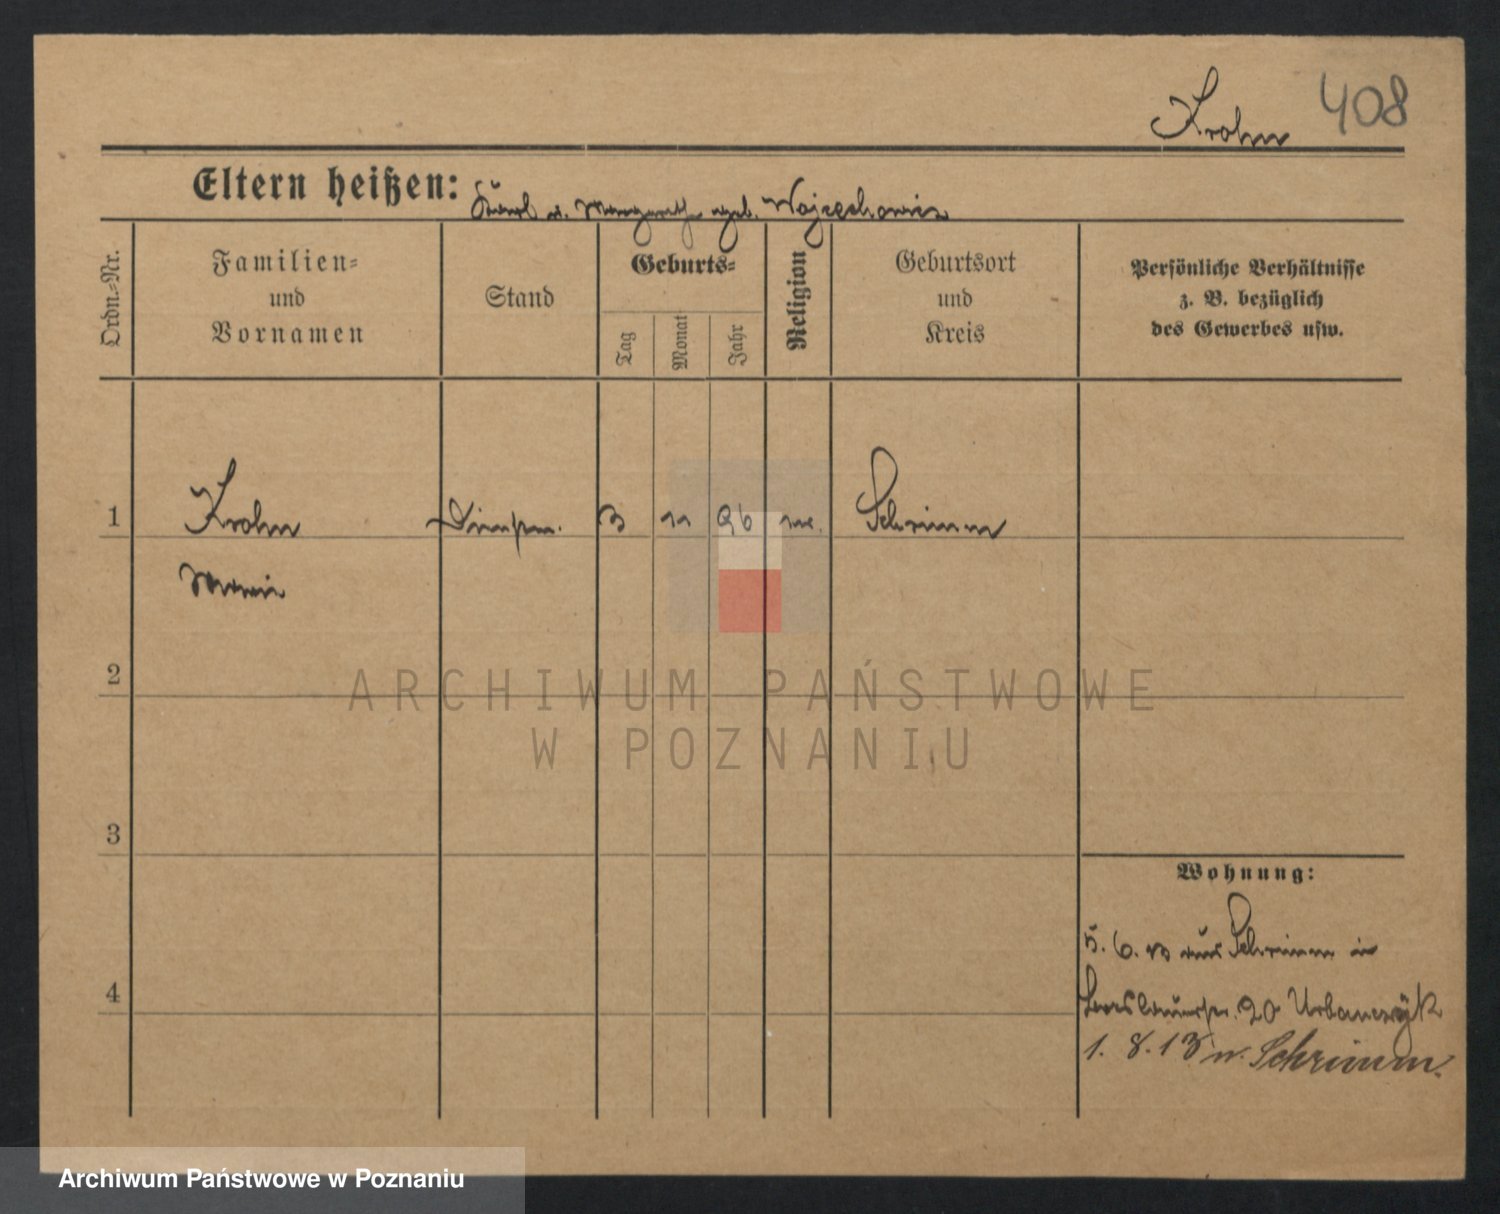 Krohn 408
Eltern heißen: Karl u. geb. Wojcechowicz
Ordn.-Nr.
Familien-
und
Vornamen
Stand
Geburts-
Tag
Monat
Jahr
Religion
Geburtsort
und
Kreis
Persönliche Verhältnisse
z. B. bezüglich
des Gewerbes usw.
1 Krohn 3 11 96 Schrimm
Maria
2
3
4
Wohnung:
5. 6. 13 aus Schrimm in
Breslauerstr. 20 Urbanczyk
1. 8. 13 n. Schrimm.
ARCHIWUM PAŃSTWOWE
W POZNANIU
Archiwum Państwowe w Poznaniu